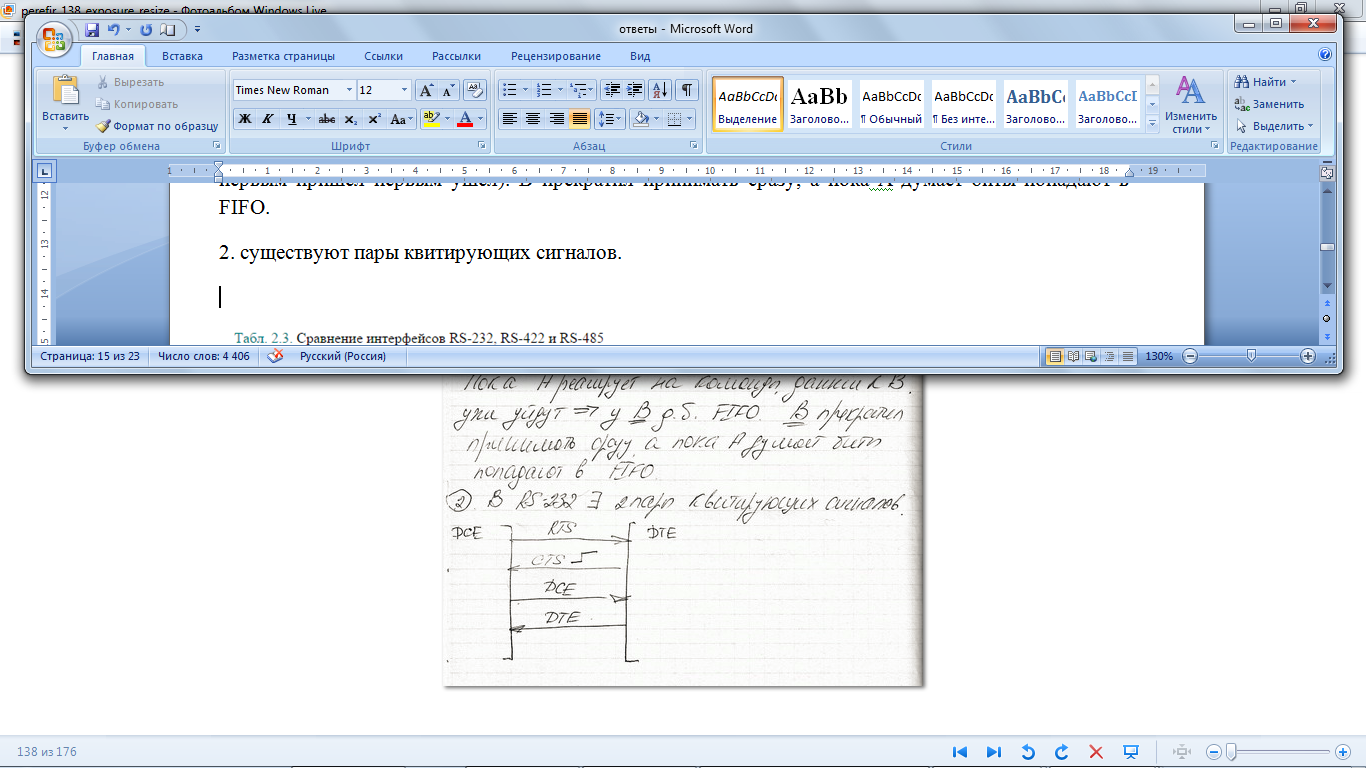 perefir_138_exposure_resize - Фотоальбом Windows Live
ответы - Microsoft Word
Главная Вставка Разметка страницы Ссылки Рассылки Рецензирование Вид
Вставить
Вырезать
Копировать
Формат по образцу
Буфер обмена
Times New Roman 12
Ж К Ч abc x₂ x² Aa
Шрифт
Абзац
AaBbCcDc AaBb AaBbCcDc AaBbCcDc AaBbCc AaBbCcI
Выделение Заголово... ¶ Обычный ¶ Без инте... Заголово... Заголово...
Изменить стили
Стили
Найти
Заменить
Выделить
Редактирование
1 1 2 3 4 5 6 7 8 9 10 11 12 13 14 15 16 17 18 19
12
13
14
первым пришел первым ушел). В прекратил принимать сразу, а пока А думает биты попадают в
FIFO.
2. существуют пары квитирующих сигналов.
Табл. 2.3. Сравнение интерфейсов RS-232, RS-422 и RS-485
Страница: 15 из 23 Число слов: 4 406 Русский (Россия) 130%
Пока А реагирует на команду, данные к В
уже уйдут => у В д.б. FIFO. В прекратил
принимать сразу, а пока А думает биты
попадают в FIFO.
2 В RS-232 ∃ 2 пары квитирующих сигналов.
DCE RTS DTE
CTS
DCE
DTE
138 из 176